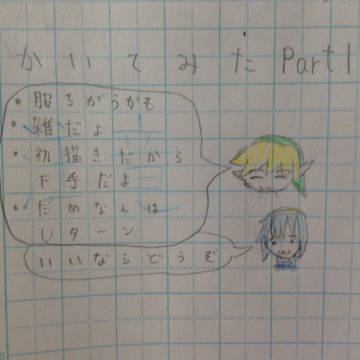 かいてみた Part1
・服ちがうかも
・雑だよ
・初描きだから
下手だよ
・だめな人は
Uターン
いいならどうぞ